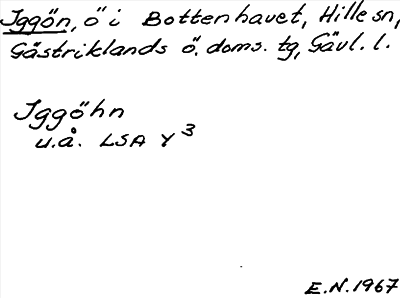 Iggön, ö i Bottenhavet, Hille sn,
Gästriklands ö. doms. tg, Gävl. l.
Iggöhn
u.å. LSA Y 3
E.N. 1967